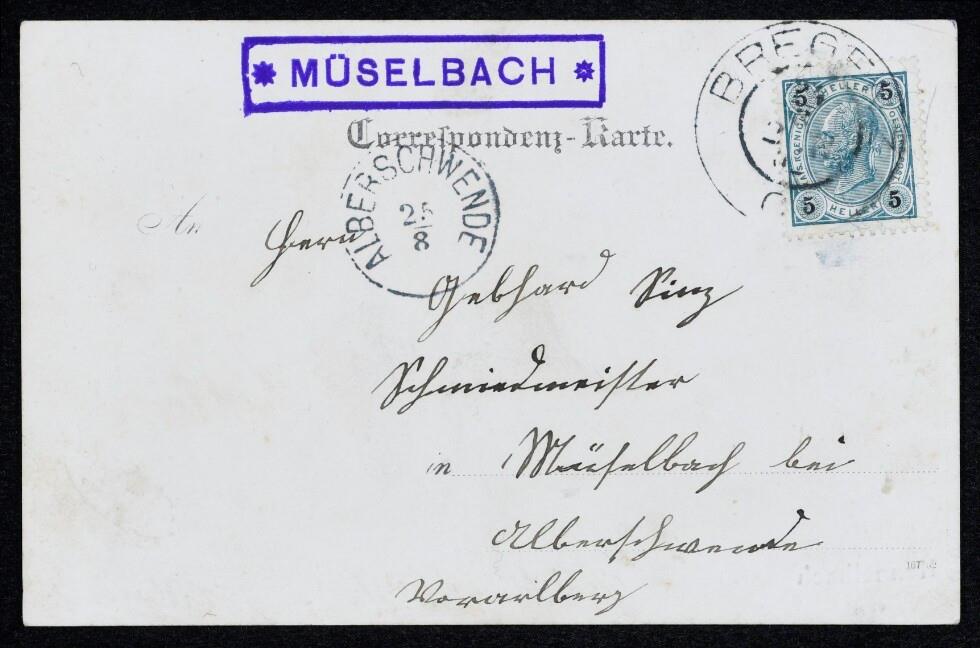 * MÜSELBACH *
Correspondenz-Karte.
BREGE
5 HELLER 5
5 HELLER 5
ALBERSCHWENDE
25
8
An
Herrn
Gebhard Sinz
Schmiedmeister
in Müselbach bei
Alberschwende
Vorarlberg